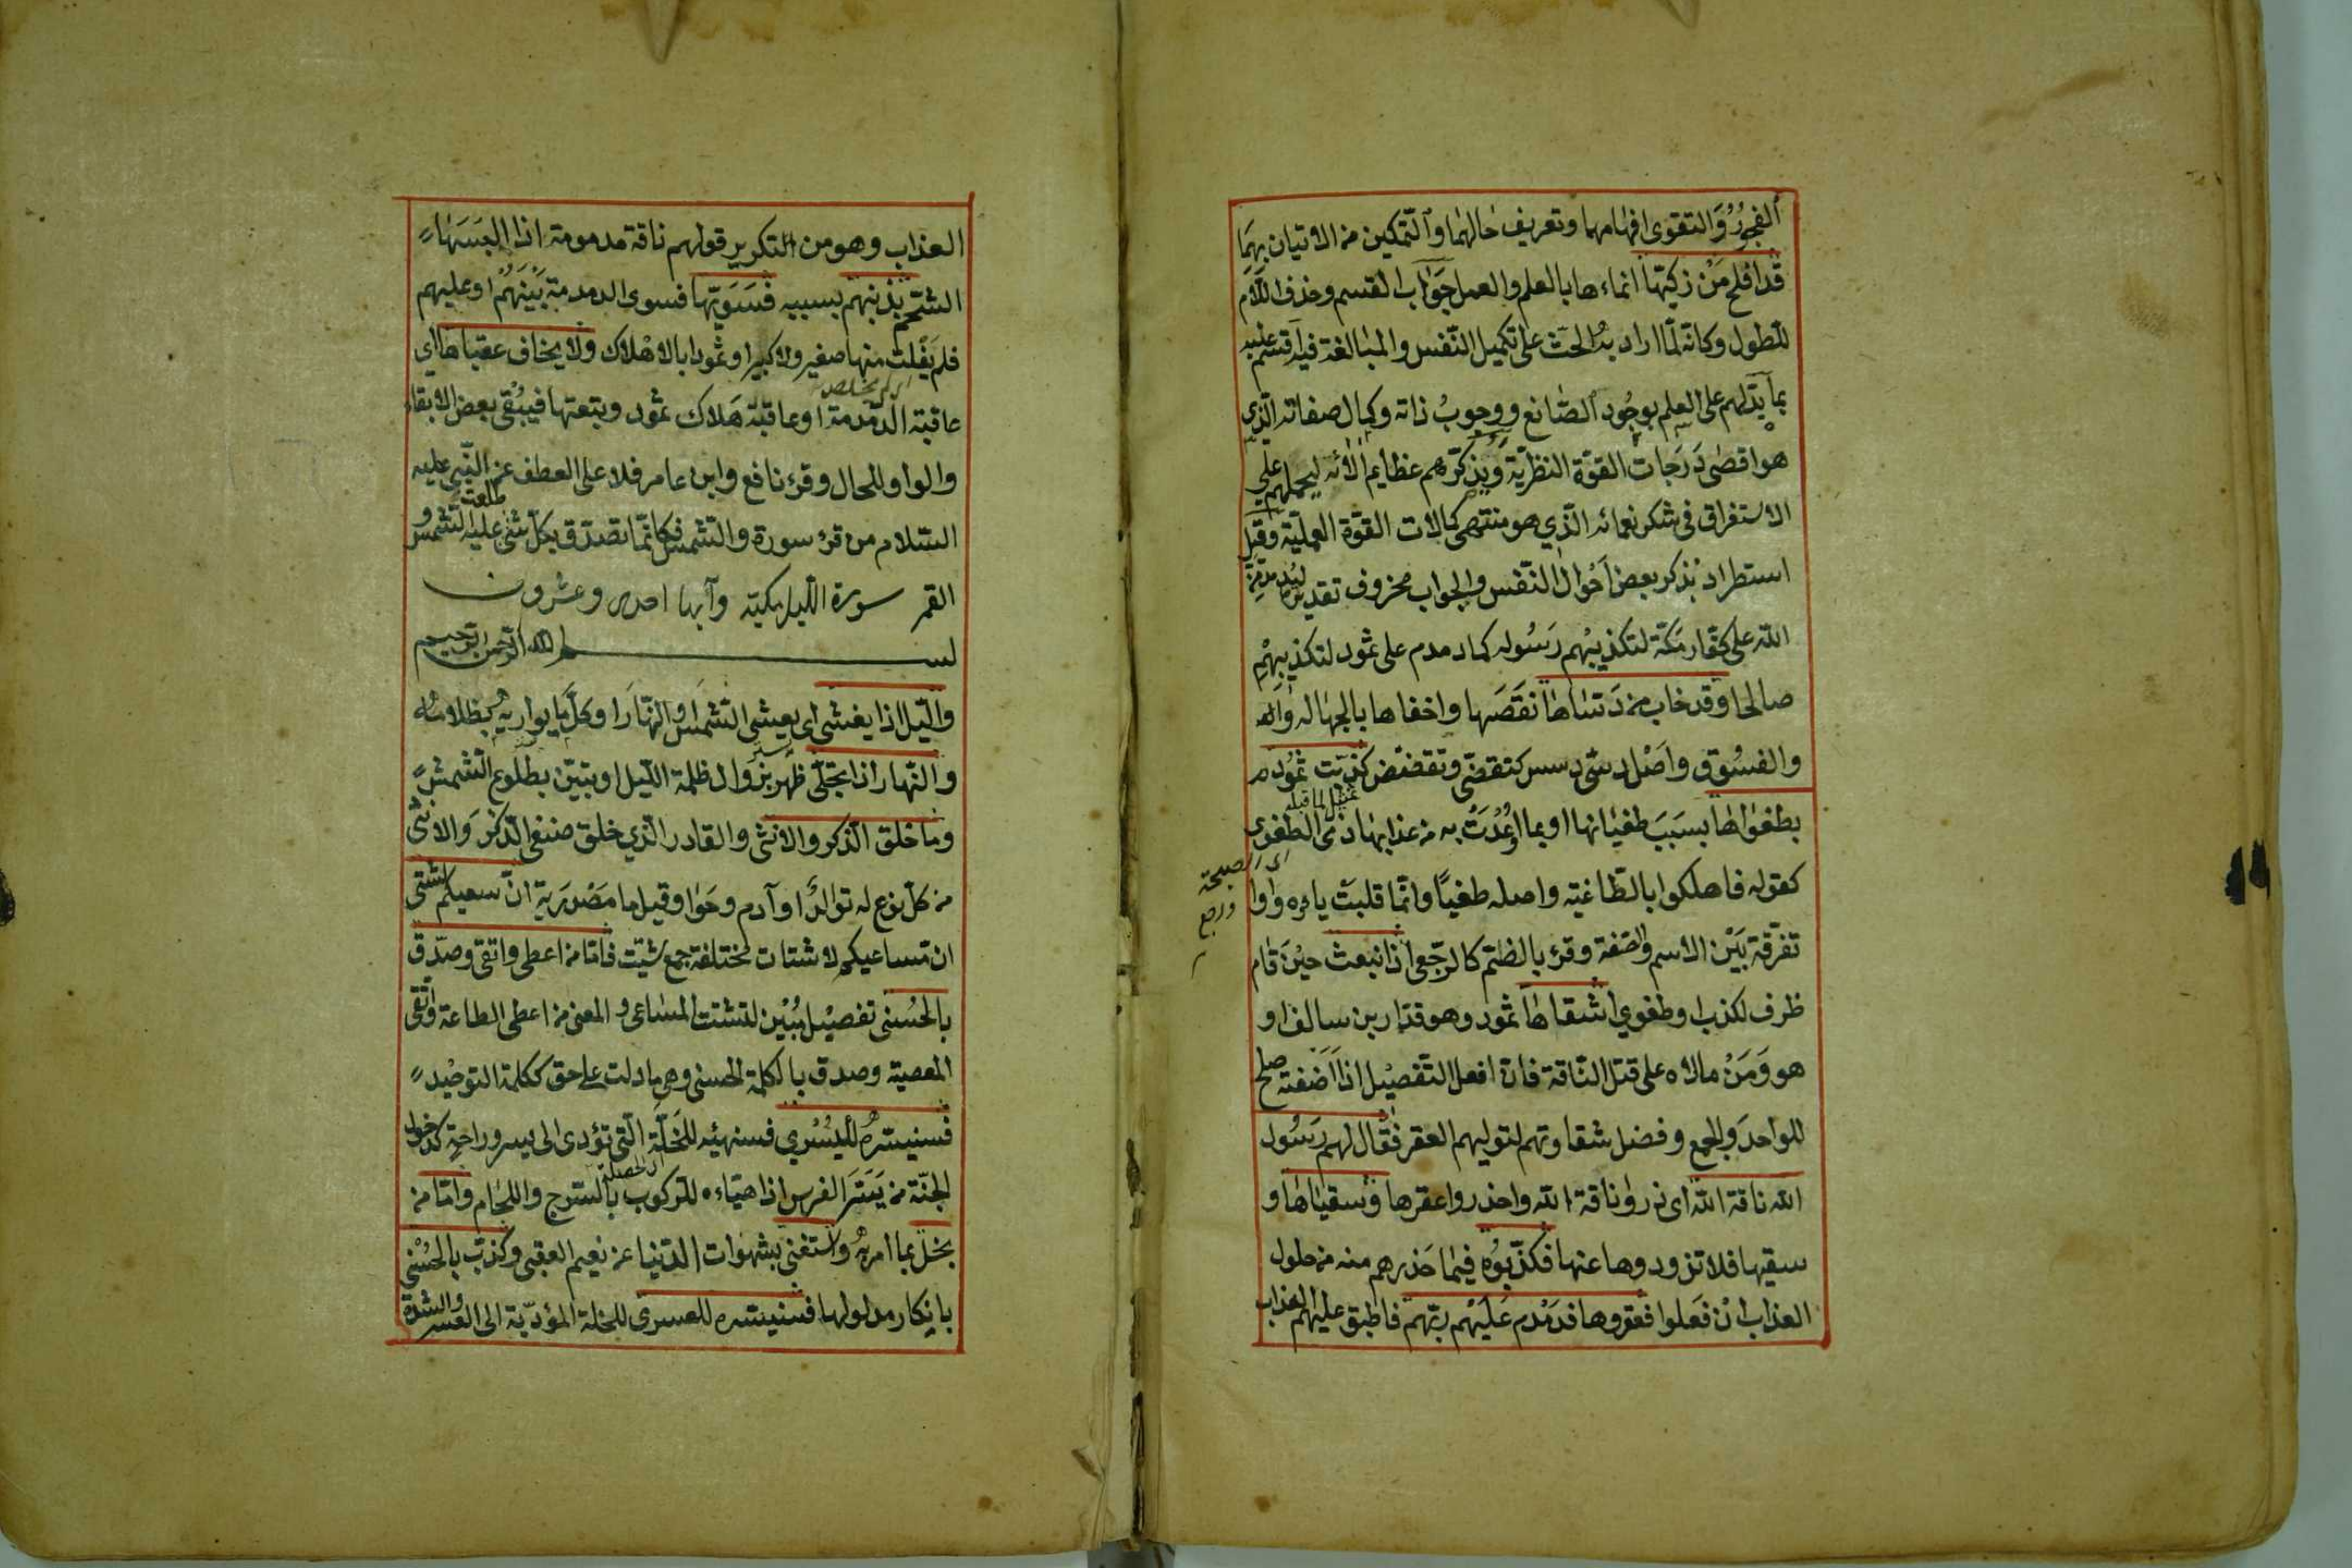 الفجور والتقوى افهامهما وتعريف حالهما والتمكين من الاتيان بهما
قد افلح من زكيها انماءها بالعلم والعمل جواب القسم وحذف اللام
للطول وكانه لما اراد به الحث على تكميل النفس والمبالغة فيه اقسم عليه
بما يدلهم على العلم بوجود الصانع ووجوب ذاته وكمال صفاته الذي
هو اقصى درجات القوة النظرية ويذكرهم عظايم الائه ليحملهم على
الاستغراق فى شكر نعمائه الذي هو منتهى كمالات القوة العملية وقيل
استطراد بذكر بعض احوال النفس والجواب محزوف تقديره ليدمدمن
الله على كفار مكة لتكذيبهم رسوله كما دمدم على ثمود لتكذيبهم
صالحا وقد خاب من دسٰاها نقصها واخفاها بالجهاله
والفسوق واصل دسى دسس كتقضى وتقضض كذبت ثمود
بطغوٰاها بسبب طغيانها او بما اوعدت به من عذابها ذى الطغوى
كقوله فاهلكوا بالطاغية واصله طغيا وانما قلبت ياءه واوا
اى الصيحة
تفرقة بين الاسم والصفة وقرء بالضم كالرجعى اذ انبعث حين قام
ظرف لكذب او طغوي اشقاها ثمود وهو قدار بن سالف او
هو ومن مالاه على قتل الناقة فان افعل التفضيل اذا اضفته صلح
للواحد والجمع وفضل شقاوتهم لتوليهم العقر فقال لهم رسول
الله ناقة الله اى ذروا ناقة الله واحذروا عقرها وسقياها و
سقيها فلا تزودوها عنها فكذبوه فيما حذرهم منه من حلول
العذاب ان فعلوا فعقروها فدمدم عليهم ربهم فاطبق عليهم العذاب
العذاب وهو من التكرير قولهم ناقة مدمومة اذا البسها
الشحم بذنبهم بسببه فسويها فسوى الدمدمة بينهم او عليهم
فلم يفلت منها صغير ولا كبير او ثمود بالاهلاك ولا يخاف عقباها اي
عاقبة الدمدمة او عاقبة هلاك ثمود وتبعتها فيبقى بعض الابقاء
والواو للحال وقرء نافع وابن عامر فلا على العطف عن النبي عليه
السلام من قرء سورة والشمس فكانما تصدق بكل شئ طلعت عليه الشمس و
القمر سورة الليل مكية وآيها احدى وعشرون
بسم الله الرحمن الرحيم
والليل اذا يغشى اى يغشى الشمس او النهار او كل ما يواريه بظلامه
والنهار اذا تجلى ظهر بزوال ظلمة الليل او تبين بطلوع الشمس
وما خلق الذكر والانثى والقادر الذي خلق صنفى الذكر والانثى
من كل نوع له توالد او آدم وحوا وقيل ما مصدرية ان سعيكم لشتى
ان مساعيكم لاشتات مختلفة جمع شتيت فاما من اعطى واتقى وصدق
بالحسنى تفصيل مبين لتشتت المساعى والمعنى من اعطى الطاعة واتقى
المعصية وصدق بالكلمة الحسنى وهى ما دلت على حق ككلمة التوحيد
فسنيسره لليسري فسنهيئه للخلة التى تؤدى الى يسر وراحة كدخول
الجنة من يسر الفرس اذا هياءه للركوب بالسرج واللجام واما من
بخل بما امر به واستغنى بشهوات الدنيا عن نعيم العقبى وكذب بالحسنى
بانكار مدلولها فسنيسره للعسرى للخلة المؤدية الى العسر والشدة